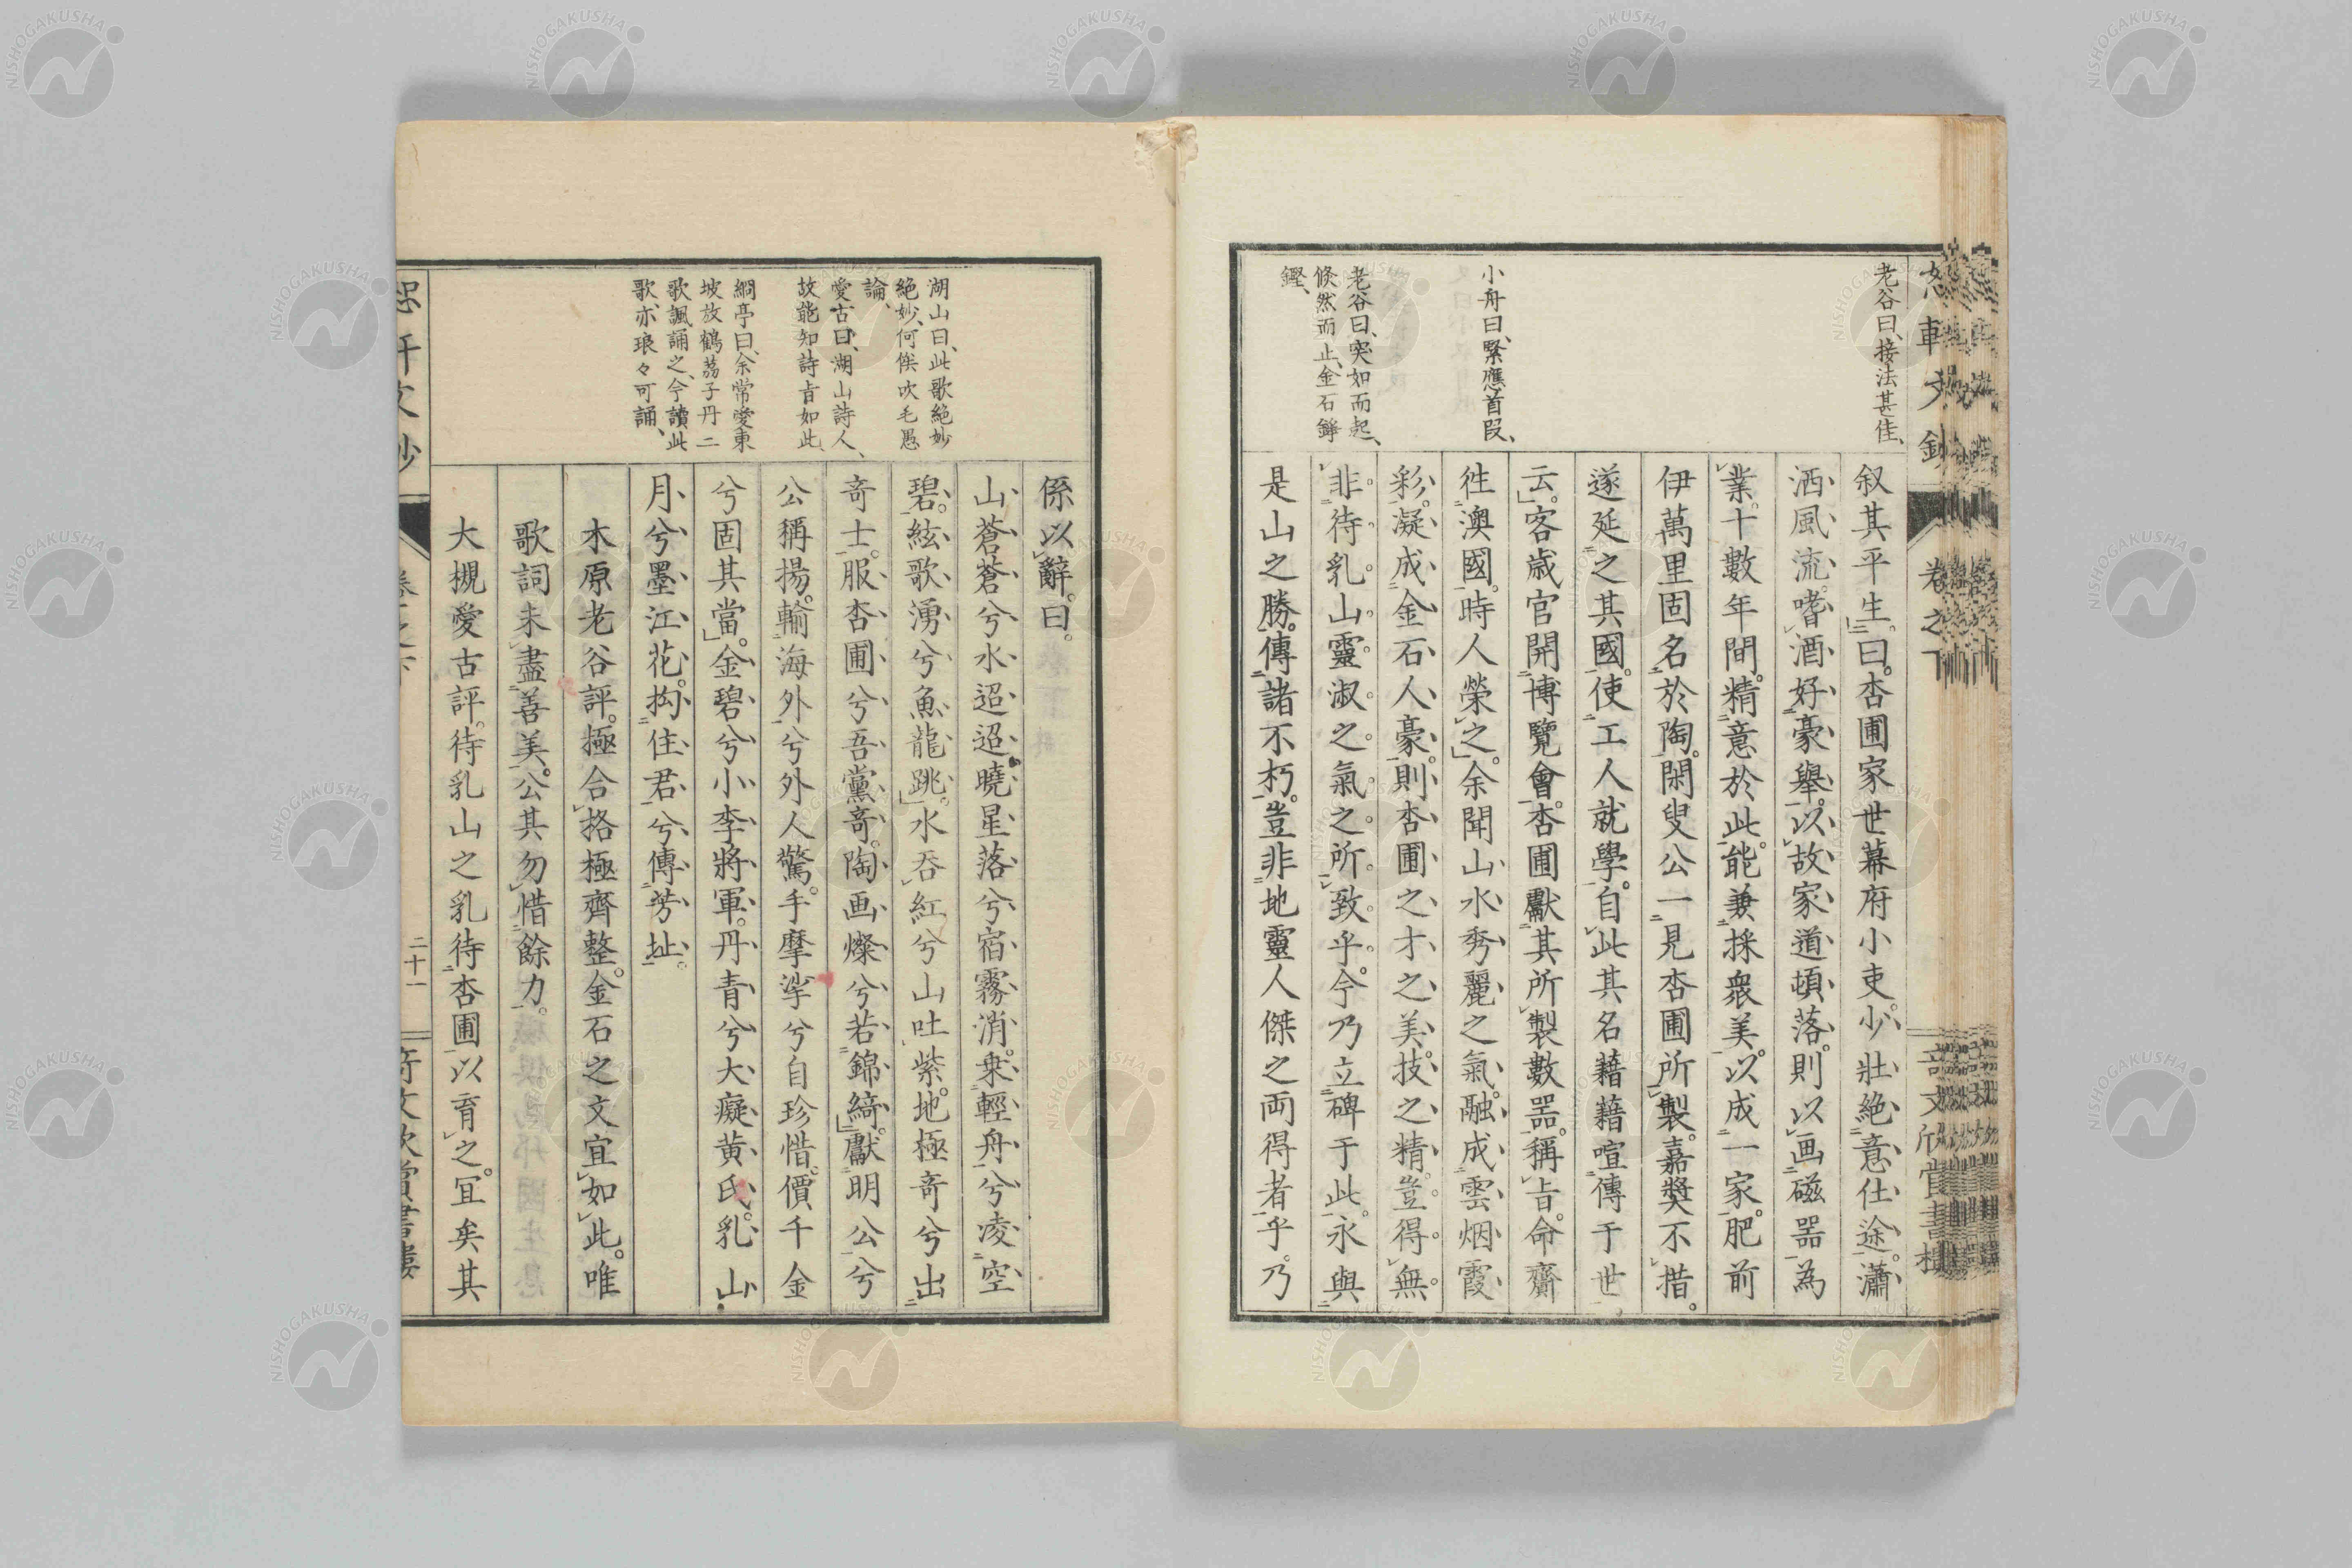 恕軒文鈔
卷之下
奇文欣賞書樓
老谷曰、接法甚佳、
小舟曰、緊應首段、
老谷曰、突如而起、
倏然而止、金石鏗
鏗、
叙其平生。曰。杏圃家世幕府小吏。少壯絶意仕途。瀟
洒風流。嗜酒好豪舉。以故家道頓落。則以画磁器為
業。十數年間。精意於此。能兼採衆美。以成一家。肥前
伊萬里固名於陶。閑叟公一見杏圃所製。嘉奬不措。
遂延之其國。使工人就學。自此其名藉藉喧傳于世
云。客歳官開博覽會。杏圃獻其所製數器。稱旨。命齎
徃澳國。時人榮之。余聞山水秀麗之氣。融成雲烟霞
彩。凝成金石人豪。則杏圃之才之美。技之精。豈得無
非待乳山靈淑之氣之所致乎。今乃立碑于此。永與
是山之勝。傳諸不朽。豈非地靈人傑之両得者乎。乃
湖山曰、此歌絶妙
絶妙、何俟吹毛愚
論、
愛古曰、湖山詩人、
故能知詩旨如此、
絅亭曰、余常愛東
坡放鶴荔子丹二
歌諷誦之、今讀此
歌、亦琅々可誦、
係以辭。曰。
山蒼蒼兮水迢迢。曉星落兮宿霧消。乗輕舟兮凌空
碧。絃歌湧兮魚龍跳。水呑紅兮山吐紫。地極竒兮出
竒士。服杏圃兮吾黨竒。陶画燦兮若錦綺。獻明公兮
公稱揚。輸海外兮外人驚。手摩挲兮自珍惜。價千金
兮固其當。金碧兮小李將軍。丹青兮大癡黄氏。乳山
月兮墨江花。抅住君兮傳芳址。
木原老谷評。極合格極齊整。金石之文宜如此。唯
歌詞未盡善美。公其勿惜餘力。
大槻愛古評。待乳山之乳待杏圃以育之。冝矣其
二十一